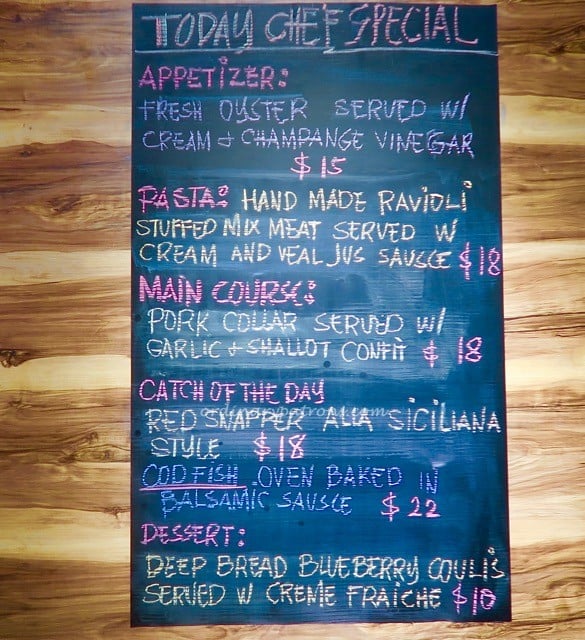 TODAY CHEF SPECIAL
APPETIZER:
FRESH OYSTER SERVED W/
CREAM & CHAMPANGE VINEGAR
$15
PASTA: HAND MADE RAVIOLI
STUFFED MIX MEAT SERVED W
CREAM AND VEAL JUS SAUSCE $18
MAIN COURSE:
PORK COLLAR SERVED W/
GARLIC & SHALLOT CONFIT $ 18
CATCH OF THE DAY
ordinarypatrons.com
RED SNAPPER ALLA SICILIANA
STYLE $18
COD FISH .OVEN BAKED IN
BALSAMIC SAUSCE $22
DESSERT:
DEEP BREAD BLUEBERRY COULIS
SERVED W CREME FRAICHE $10